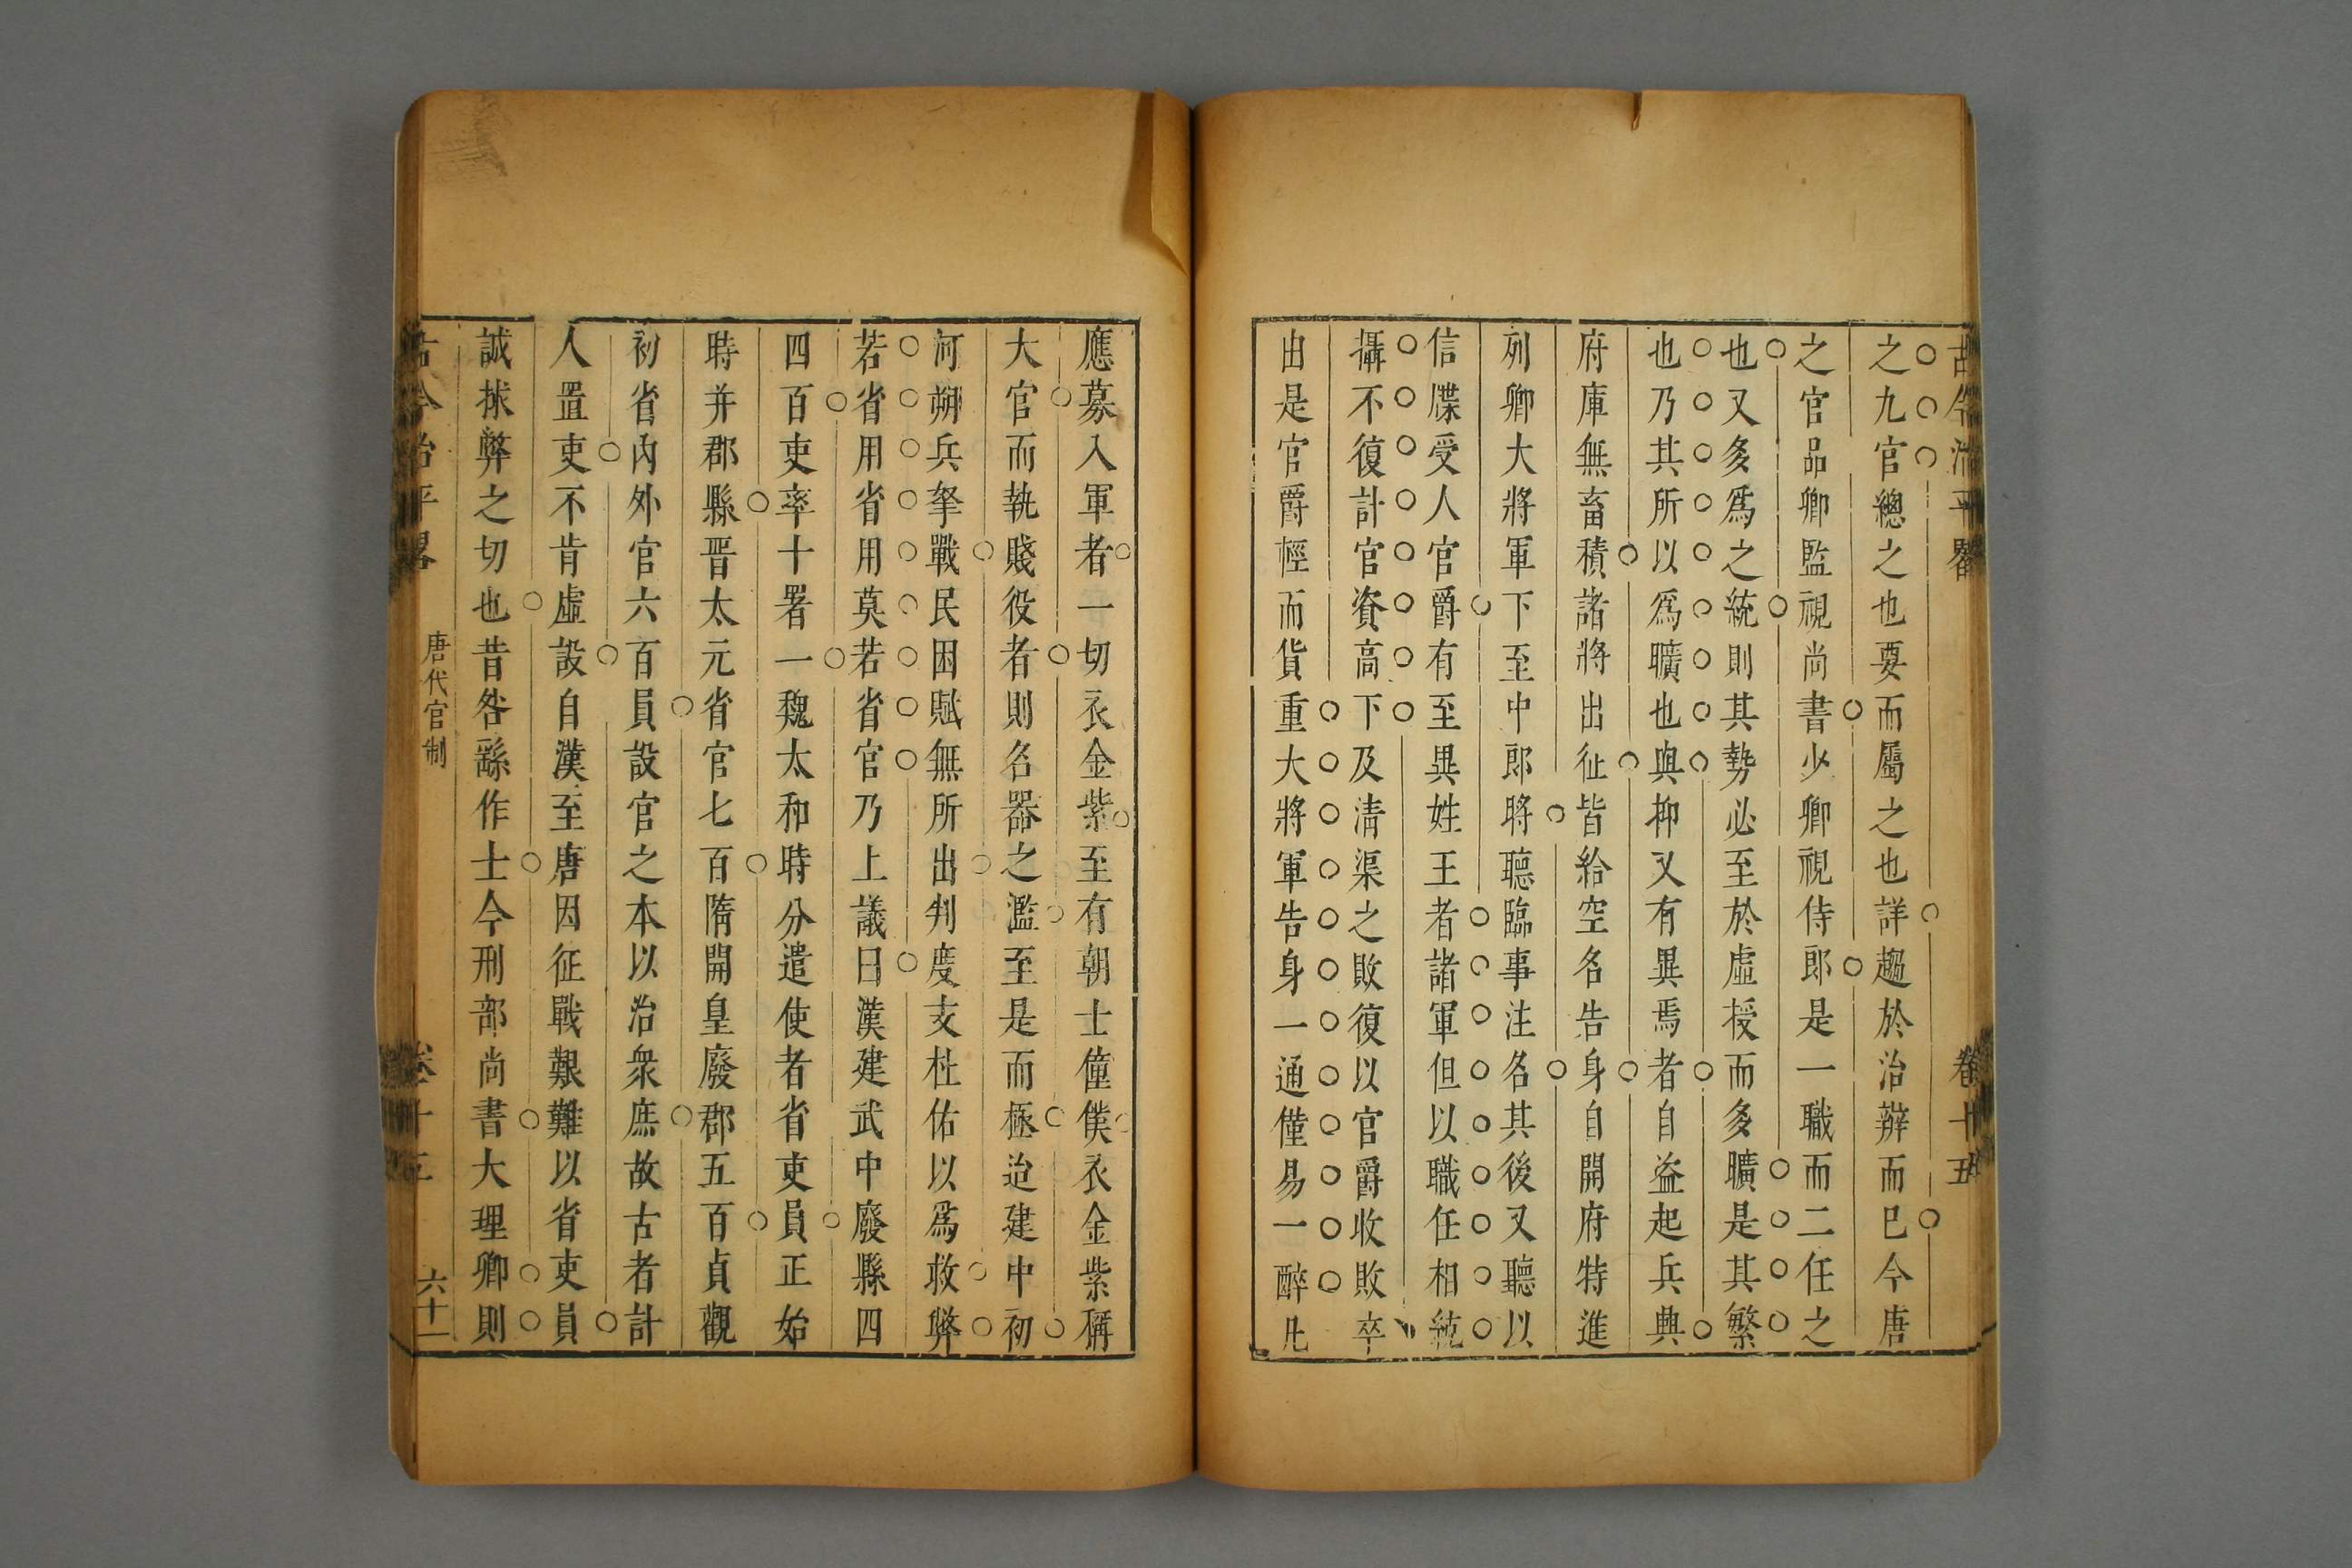 古今治平畧 卷十五
之九官總之也要而屬之也詳趨於治辦而已今唐
之官品卿監視尚書少卿視侍郎是一職而二任之
也又多爲之統則其勢必至於虛授而多曠是其繁
也乃其所以爲曠也與抑又有異焉者自盜起兵興
府庫無畜積諸將出征皆給空名告身自開府特進
列卿大將軍下至中郎將聽臨事注名其後又聽以
信牒受人官爵有至異姓王者諸軍但以職任相統
攝不復計官資高下及清渠之敗復以官爵收敗卒
由是官爵輕而貨重大將軍告身一通僅易一醉凡
應募入軍者一切衣金紫至有朝士僮僕衣金紫稱
大官而執賤役者則名器之濫至是而極迨建中初
河朔兵拏戰民困賦無所出判度支杜佑以爲救弊
若省用省用莫若省官乃上議曰漢建武中廢縣四
四百吏率十署一魏太和時分遣使者省吏員正始
時并郡縣晋太元省官七百隋開皇廢郡五百貞觀
初省內外官六百員設官之本以治衆庶故古者計
人置吏不肯虛設自漢至唐因征戰艱難以省吏員
誠捄弊之切也昔咎繇作士今刑部尚書大理卿則
古今治平畧 唐代官制 卷十五 六十一